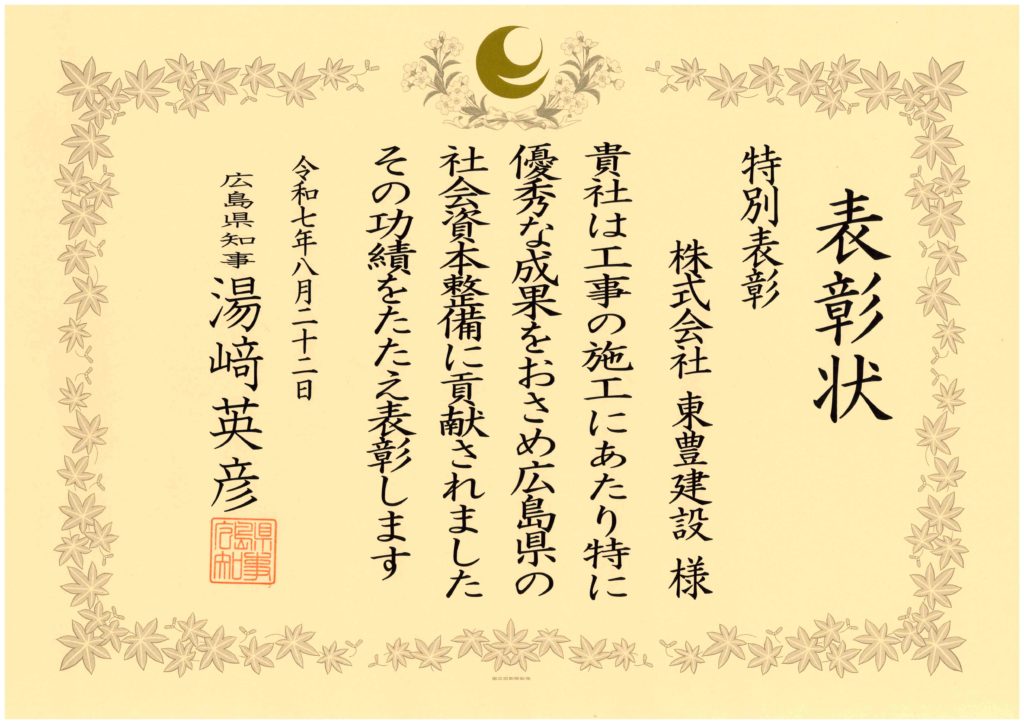 表彰状
特別表彰
株式会社 東豊建設 様
貴社は工事の施工にあたり特に
優秀な成果をおさめ広島県の
社会資本整備に貢献されました
その功績をたたえ表彰します
令和七年八月二十二日
広島県知事 湯﨑英彦
広島県知事